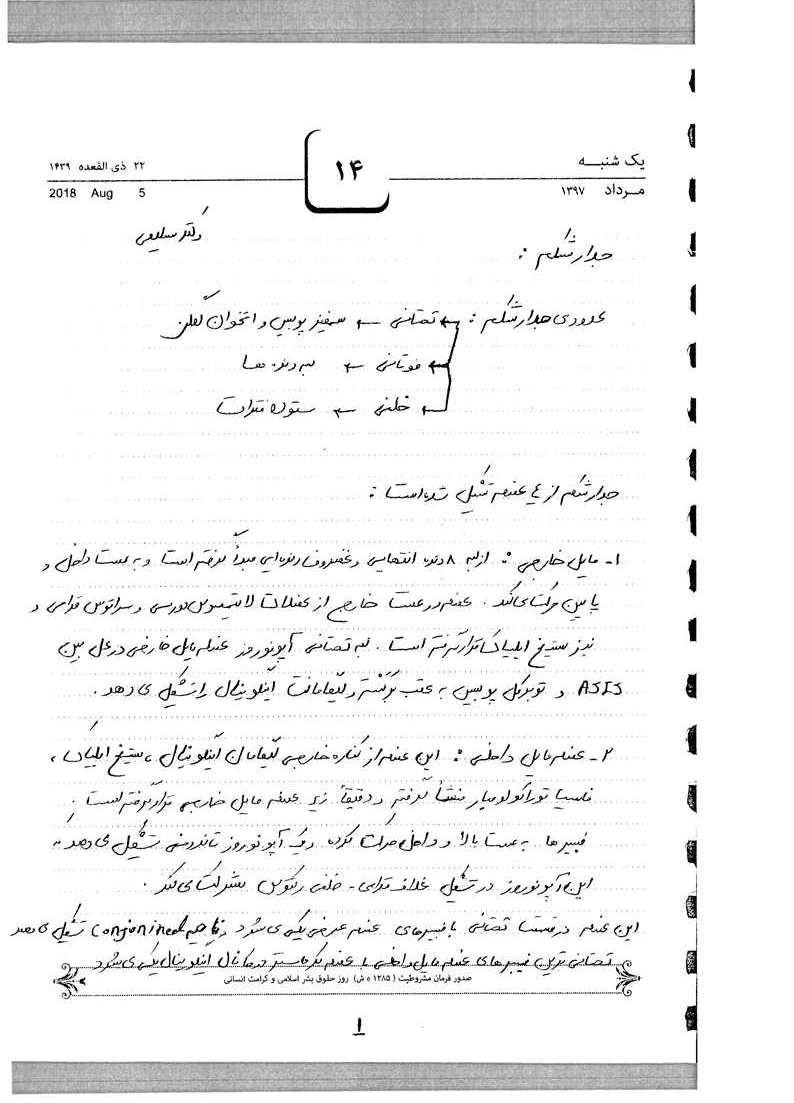 یک شنبـــه
۱۴
۲۲ ذی القعده ۱۴۳۹
مـرداد ۱۳۹۷
2018 Aug 5
دکتر سلیمی
جدار شکم :
محدوده‌ی جدار شکم : تحتانی ← سمفیز پوبیس و استخوان لگن
فوقانی ← لبه دنده ها
خلفی ← ستون فقرات
جدار شکم از ٤ عضله تشکیل شده است :
۱- مایل خارجی : از لبه ۸ دنده انتهایی و غضروف دنده‌ایی مبدأ گرفته است و به سمت داخل و
پایین حرکت می‌کند . عضله در سمت خارج از عضلات لاتیسموس دورسی و سراتوس قدامی و
نیز ستیغ ایلیاک قرار گرفته است . لبه تحتانی آپونوروز عضله مایل خارجی در محل بین
ASIS و توبرکل پوبیس به عقب برگشته و لیگامانت اینگوینال را تشکیل می دهد .
۲- عضله مایل داخلی : این عضله از کناره خارجی لیگامان اینگوینال ، ستیغ ایلیاک ،
فاسیا توراکولومبار منشأ گرفته و دقیقاً زیر عضله مایل خارجی قرار گرفته است .
فیبرها به سمت بالا و داخل حرکت کرده و یک آپونوروز تاندونی تشکیل می دهد که
این آپونوروز در تشکیل غلاف قدامی - خلفی رکتوس شرکت می کند .
این عضله در قسمت تحتانی با فیبرهای عضله عرضی یکی می شود و ناحیه Conjoined تشکیل می دهد
تحتانی ترین فیبرهای عضله مایل داخلی با عضله کرماستر در کانال اینگوینال یکی می شود
صدور فرمان مشروطیت ( ۱۲۸۵ ه ش) روز حقوق بشر اسلامی و کرامت انسانی
۱